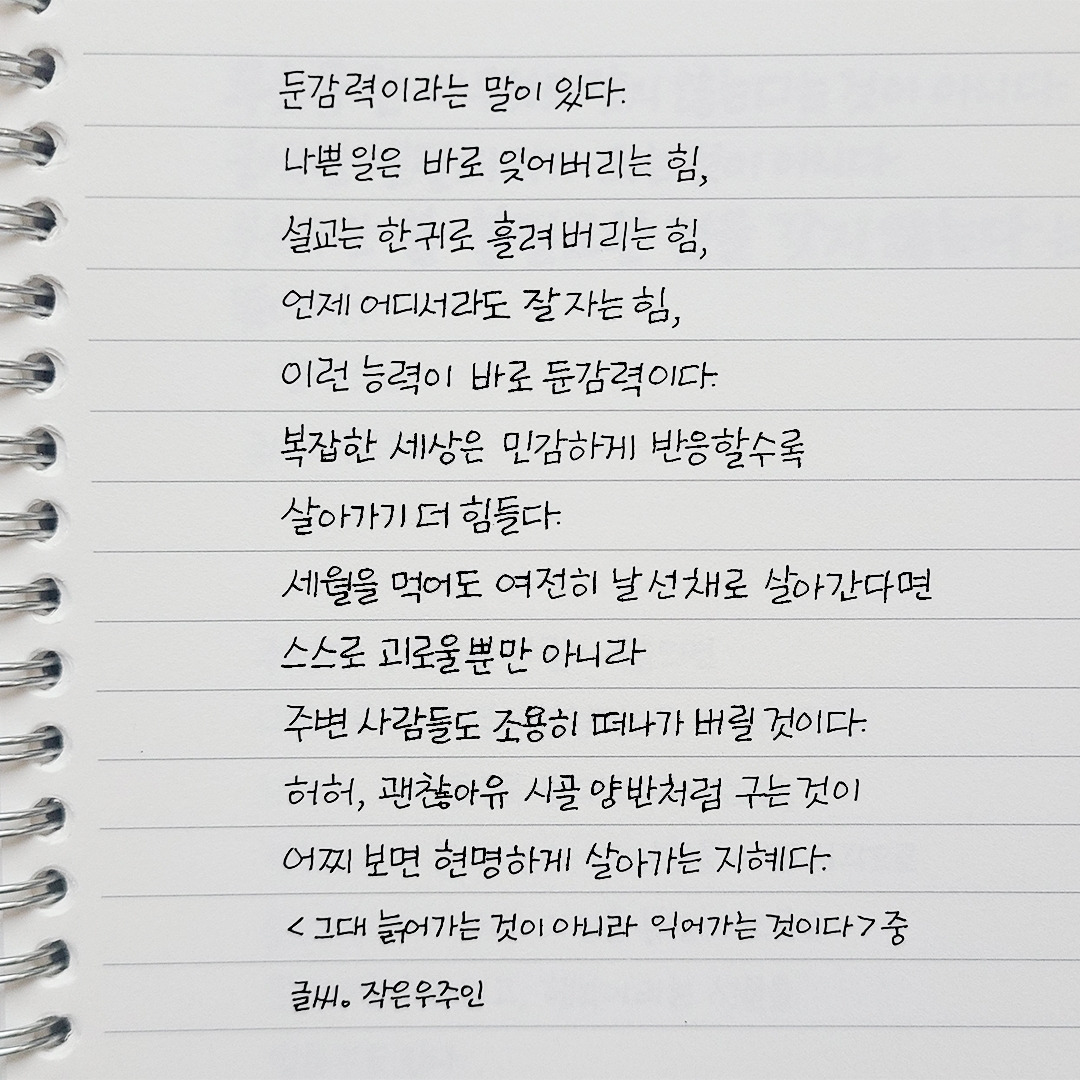 둔감력이라는 말이 있다.
나쁜 일은 바로 잊어버리는 힘,
설교는 한귀로 흘려버리는 힘,
언제 어디서라도 잘 자는 힘,
이런 능력이 바로 둔감력이다.
복잡한 세상은 민감하게 반응할수록
살아가기 더 힘들다.
세월을 먹어도 여전히 날선채로 살아간다면
스스로 괴로울뿐만 아니라
주변 사람들도 조용히 떠나가 버릴 것이다.
허허, 괜찮아유 시골 양반처럼 구는 것이
어찌 보면 현명하게 살아가는 지혜다.
<그대 늙어가는 것이 아니라 익어가는 것이다>중
글씨。작은우주인